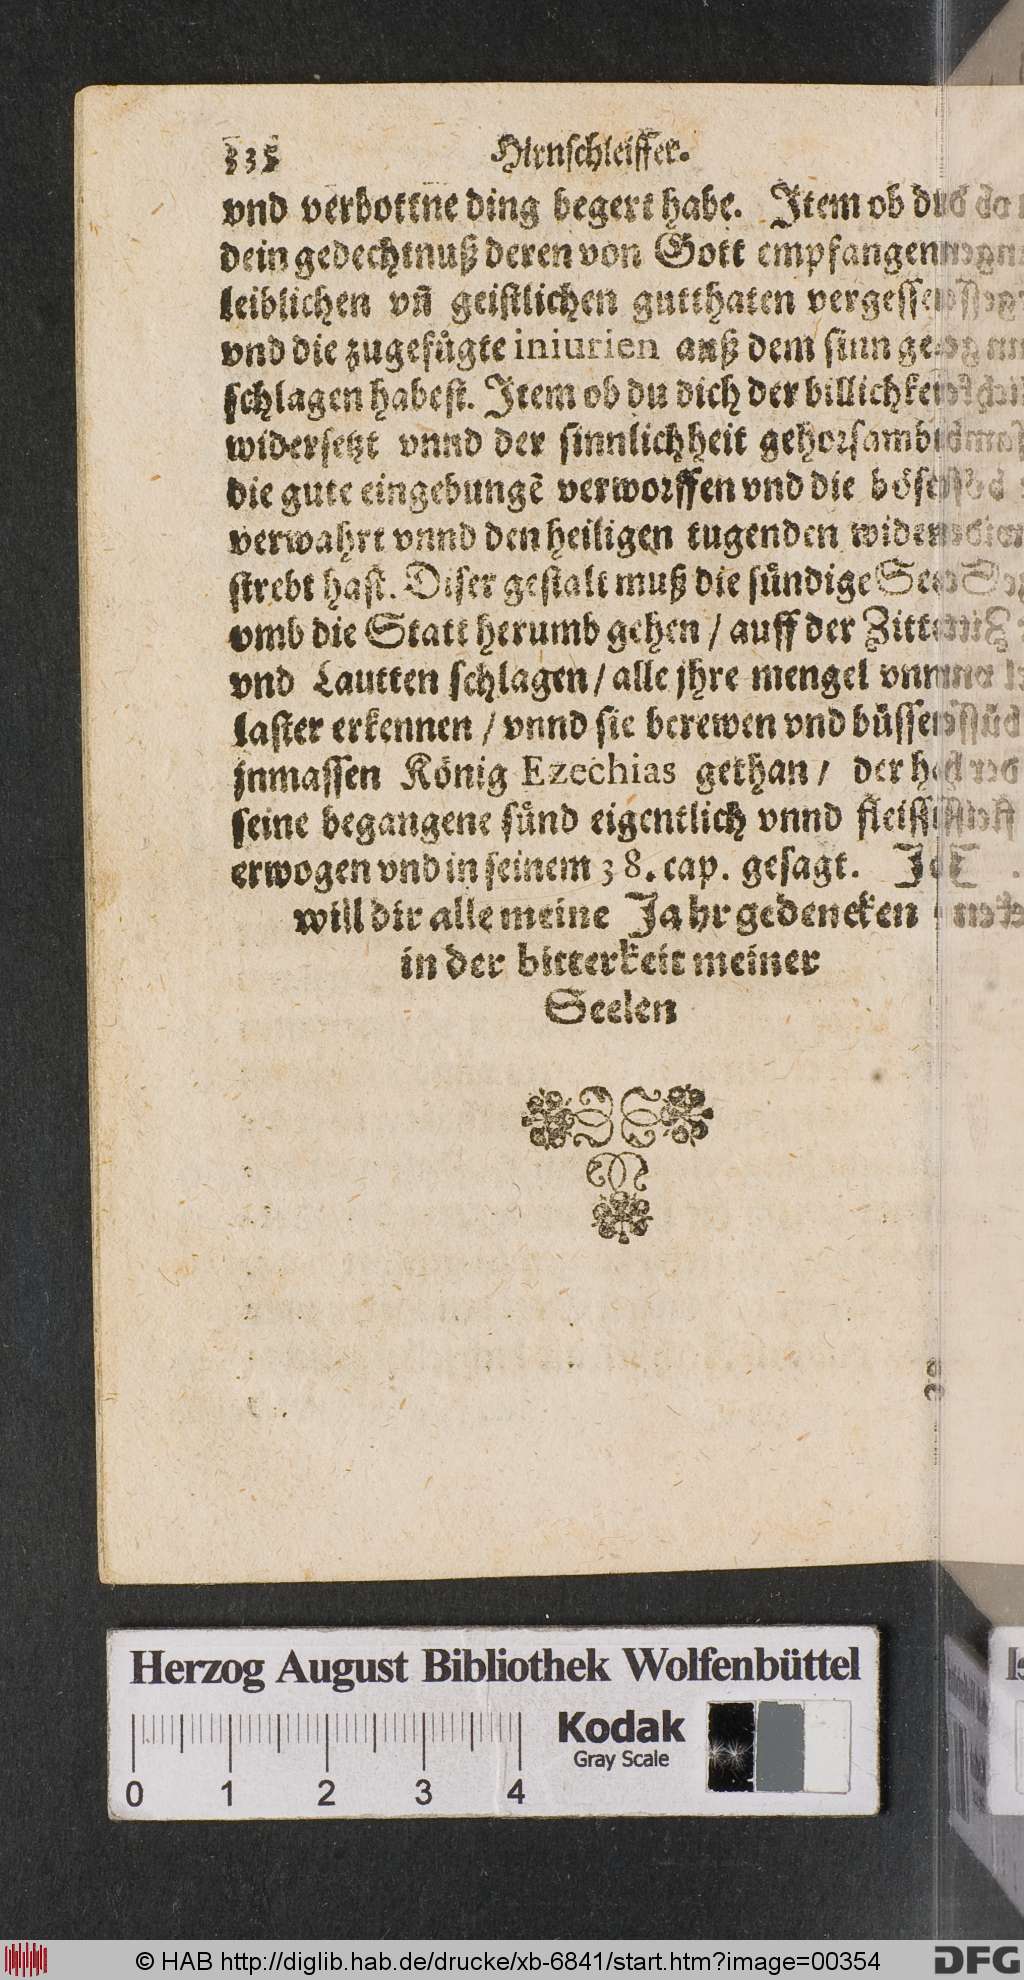 335 Hirnschleiffer.
vnd verbottne ding begert habe. Item ob du
dein gedechtnuß deren von Gott empfangen
leiblichen vn̄ geistlichen gutthaten vergessen
vnd die zugefügte iniurien auß dem sinn ge-
schlagen habest. Item ob du dich der billichkeit
widersetzt vnnd der sinnlichheit gehorsamb
die gute eingebungē verworffen vnd die böse
verwahrt vnnd den heiligen tugenden wider-
strebt hast. Diser gestalt muß die sündige Seel
vmb die Statt herumb gehen / auff der Zittern
vnd Lautten schlagen / alle jhre mengel vnnd
laster erkennen / vnnd sie berewen vnd büssen
jnmassen König Ezechias gethan / der hat
seine begangene sünd eigentlich vnnd fleissig
erwogen vnd in seinem 38. cap. gesagt. Ich
will dir alle meine Jahr gedencken
in der bitterkeit meiner
Seelen
Herzog August Bibliothek Wolfenbüttel
Kodak
Gray Scale
0 1 2 3 4
© HAB http://diglib.hab.de/drucke/xb-6841/start.htm?image=00354
DFG